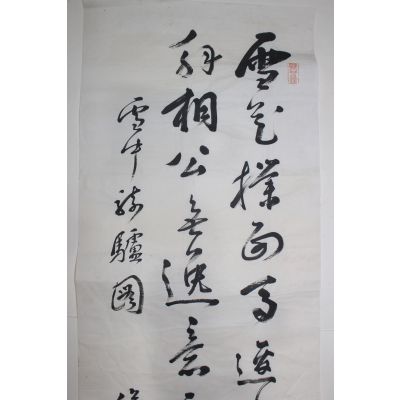 雪花撲面馬遲
相公無逸意
雪中騎驢圖